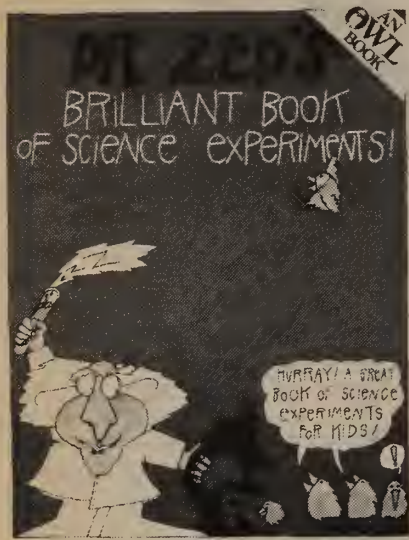 AN
OWL
BOOK
DR ZED'S
BRILLIANT BOOK
OF SCIENCE EXPERIMENTS!
HURRAY! A GREAT
BOOK OF SCIENCE
EXPERIMENTS
FOR KIDS!
!